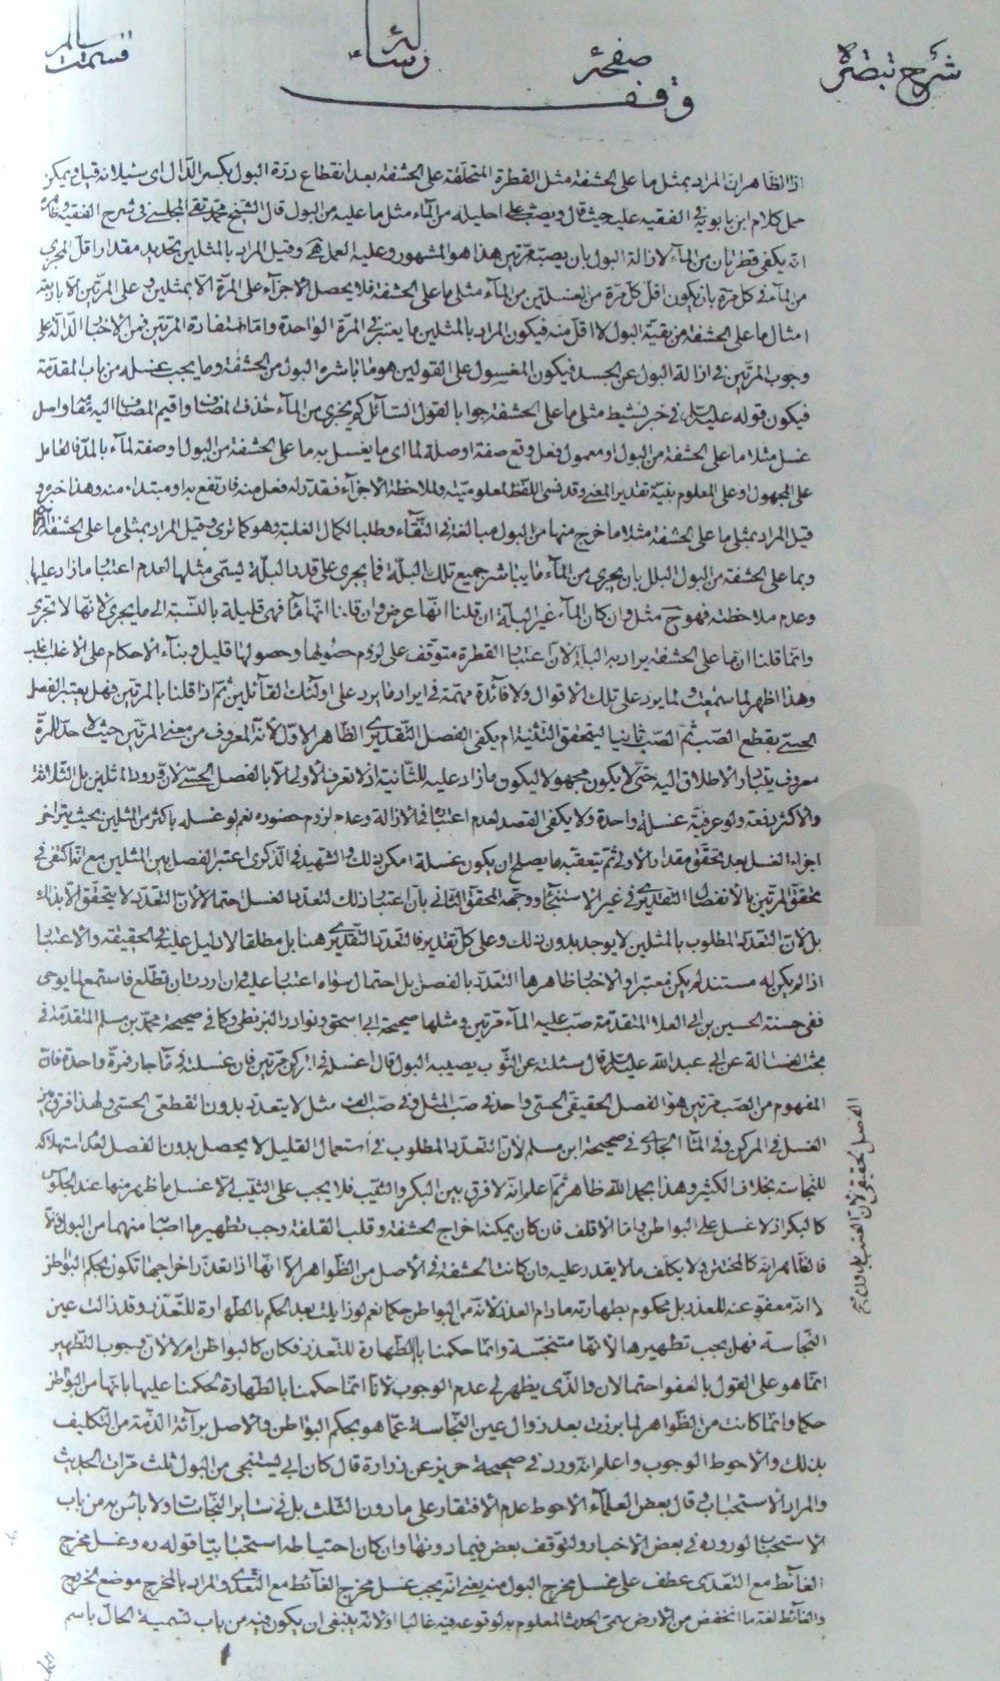 شرح تبصرة
صفحة
رسائل
وقف
اذ الظاهر ان المراد بمثل ما على الحشفة مثل القطرة المتخلفة على الحشفة بعد انقطاع درّة البول بكسر الدال اى سيلانه قيل ويمكن
حمل كلام ابن بابويه في الفقيه عليه حيث قال ويصب على احليله من الماء مثل ما عليه من البول قال الشيخ محمد تقى المجلسى في شرح الفقيه وظاهره
انه يكفى قطرتان من الماء لازالة البول بان يصب مرتين هذا هو المشهور وعليه العمل وقيل المراد بالمثلين تحديد مقدار اقل المجزى
من الماء في كل مرة بان يكون اقل كل مرة من الغسلتين من الماء مثلى ما على الحشفة فلا يحصل الاجزاء على المرة الا بمثلين وعلى المرتين الا باربعة
امثال ما على الحشفة من بقية البول لا اقل منه فيكون المراد بالمثلين ما يعتبر في المرة الواحدة واما استفادة المرتين فمن الاخبار الدالة على
وجوب المرتين في ازالة البول عن الجسد فيكون المغسول على القولين هو ما باشره البول من الحشفة وما يجب غسله من باب المقدمة
فيكون قوله عليه السلام في خبر نشيط مثلى ما على الحشفة جوابا لقول السائل كم يجزى من الماء حذف المضاف واقيم المضاف اليه مقامه اصل
غسل مثلا ما على الحشفة من البول او معمول فعل وقع صفة او صلة لما اى ما يغسل به ما على الحشفة من البول وصفة لماء بالمد فالعامل
على المجهول او على المعلوم بنية تقدير المعنى
قيل المراد بمثلى ما على الحشفة مثلا ما خرج منها من البول مبالغة في النقاء وطلبا لكمال الغلبة وهو كما ترى وقيل المراد بمثلى ما على الحشفة
وبما على الحشفة من البول البلل بان يجرى من الماء ما يباشر جميع تلك البلة فما يجرى على قدر البلة يسمى مثلها لعدم اعتبار ما زاد عليها
وعدم ملاحظته فهو ح مثل وان كان الماء غير البلة ان قلنا انها عرض وان قلنا انها ماء فهى قليلة بالنسبة الى ما يجرى لانها لا تجرى
وانما قلنا ان ما على الحشفة يراد به البلة لان اعتبار القطرة متوقف على لزوم حصولها وحصولها قليل وبناء الاحكام على الاغلب
وهذا اظهر لما سمعت ولما يرد على تلك الاقوال ولا فائدة مهمة في ايراد ما يرد على اولئك القائلين ثم اذا قلنا بالمرتين فهل يعتبر الفصل
الحسى بقطع الصب ثم الصب ثانيا ليتحقق التثنية ام يكفى الفصل التقديرى الظاهر الاول لانه المعروف من معنى المرتين حيث لا حد للمرة
معروف يتبادر الاطلاق اليه حتى لا يكون مجهولا ليكون ما زاد عليه للثانية اذ لا تعرف الاولى الا بالفصل الحسى لان قدر المثلين بل الثلاثة
والاكثر دفعة ولو عرفية غسلة واحدة ولا يكفى القصد لعدم اعتباره في الازالة وعدم لزوم حضوره نعم لو غسله باكثر من المثلين بحيث يتراخى
اجزاء الغسل بعد تحقق مقدار الاولى ثم يتعقبه ما يصلح ان يكون غسلة امكن ذلك والشهيد في الذكرى اعتبر الفصل بين المثلين مع انه اكتفى في
تحقق المرتين بالانفصال التقديرى في غير الاستنجاء ووجهه المحقق الثانى بان اعتبار ذلك لتعدد الغسل احتمالا لان التعدد لا يتحقق الا بذلك
بل لان التعدد المطلوب بالمثلين لا يوجد بدون ذلك وعلى كل تقدير فالتعدد التقديرى هنا بل مطلقا لا دليل عليه في الحقيقة والاعتبار
اذا لم يكن له مستند لم يكن معتبرا والاخبار ظاهرها التعدد بالفصل بل احتمال سواه اعتبار عليه وان اردت ان تطلع فاستمع لما يوحى
ففى حسنة الحسين بن ابى العلا المتقدمة صب عليه الماء مرتين ومثلها صحيحة ابى اسحق ونوادر البزنطى وكما في صحيحة محمد بن مسلم المتقدمة في
بحث الغسالة عن ابى عبد الله عليه السلام قال سئلته عن الثوب يصيبه البول قال اغسله في المركن مرتين فان غسلته في ماء جار فمرة واحدة فان
المفهوم من الصب مرتين هو الفصل الحقيقى الحسى واحد في صب المثل وفي صب الف مثل لا يتعدد بدون انقطع الحسى ولهذا فرق بين
الغسل في المركن وفي الماء الجارى في صحيحة ابن مسلم لان التعدد المطلوب في استعمال القليل لا يحصل بدون الفصل لعدم استهلاكه
للنجاسة بخلاف الكثير وهذا بحمد الله ظاهر ثم اعلم انه لا فرق بين البكر والثيب فلا يجب على الثيب الا غسل ما ظهر منها عند الجلوس
كالبكر اذ لا غسل على البواطن واما الاقلف فان كان يمكنه اخراج الحشفة وقلب القلفة وجب تطهير ما اصاب منهما من البول والا
فالظاهر انه كالمختتن ولا يكلف ما لا يقدر عليه وان كانت الحشفة في الاصل من الظواهر الا انها اذا تعذر اخراجها تكون بحكم البواطن
لا انه معفو عنه للعذر بل محكوم بطهارته ما دام العذر لانه من البواطن حكما نعم لو زايله بعد الحكم بالطهارة للتعذر وقد زالت عين
النجاسة فهل يجب تطهيرها لانها متنجسة وانما حكمنا بالطهارة للتعذر فكان كالبواطن ام لا لان وجوب التطهير
انما هو على القول بالعفو احتمالان والذى يظهر لى عدم الوجوب لانا انما حكمنا بالطهارة لحكمنا عليها بانها من البواطن
حكما وانما كانت من الظواهر لما برزت بعد زوال عين النجاسة عما هو بحكم البواطن والاصل برائة الذمة من التكليف
بذلك والاحوط الوجوب واعلم انه ورد في صحيحة حريز عن زرارة قال كان ابى يستنجى من البول ثلث مرات الحديث
والمراد الاستحباب قال بعض العلماء الاحوط عدم الاقتصار على ما دون الثلث بل في ساير النجاسات ولا باس به من باب
الاستحباب لوروده في بعض الاخبار ولتوقف بعض فيما دونها وان كان احتياطه استحبابيا قوله ره وغسل مخرج
الغائط مع التعدى عطف على غسل مخرج البول منه يعنى انه يجب غسل مخرج الغائط مع التعدى والمراد بالمخرج موضع الخروج
والغائط لغة ما انخفض من الارض سمى الحدث المعلوم به لوقوعه فيه غالبا اولانه ينبغى ان يكون فيه من باب تسمية الحال باسم